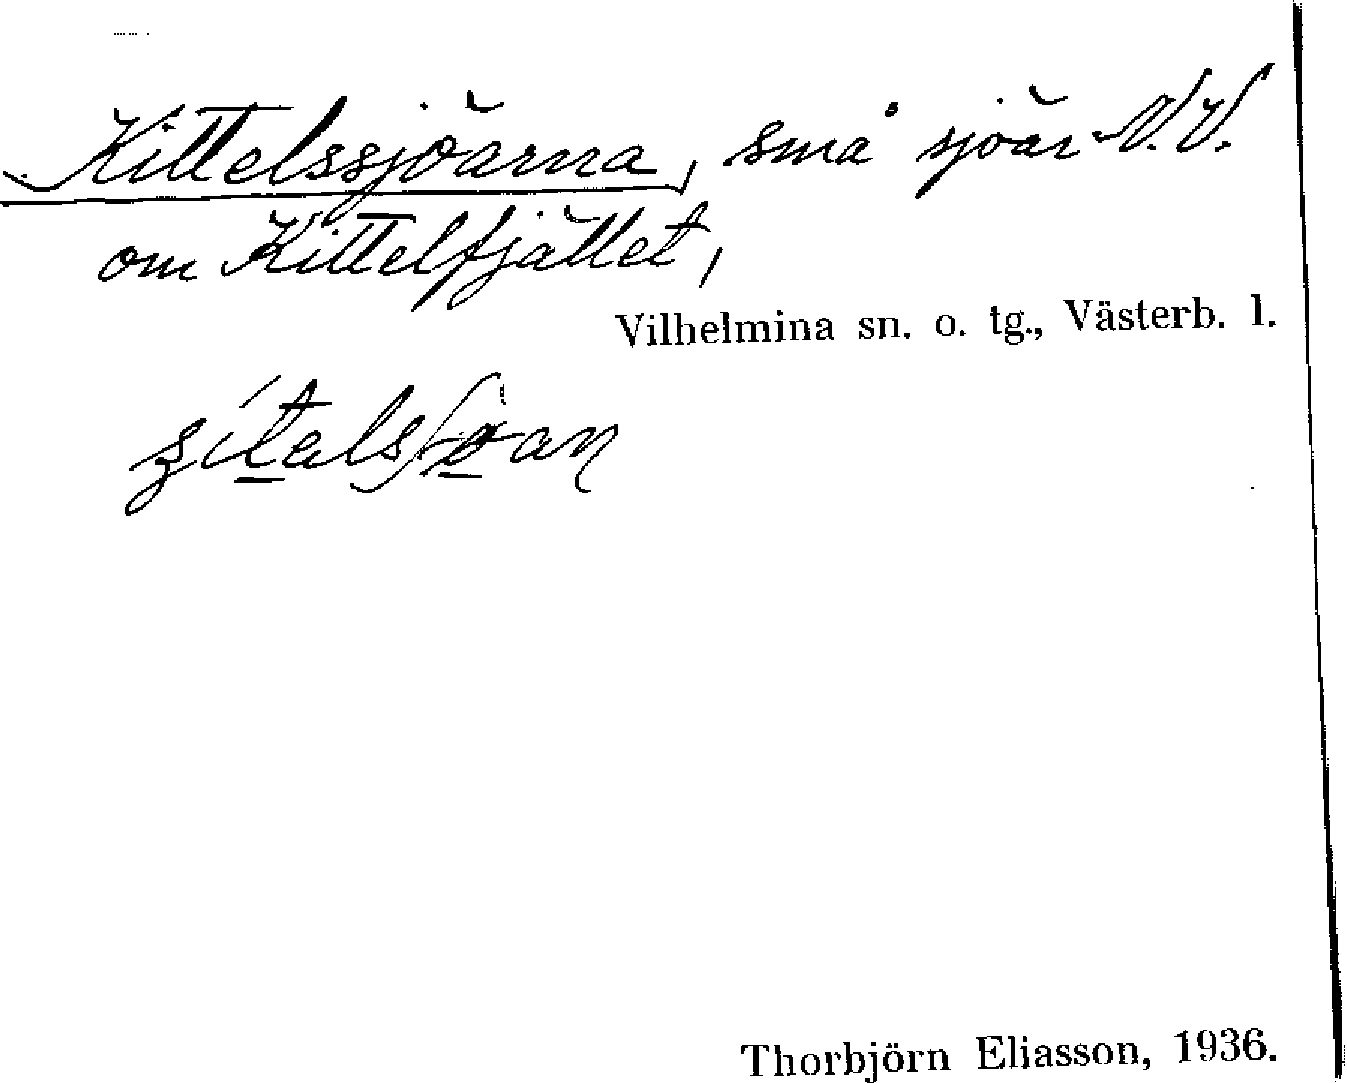 Kittelssjöarna, små sjöar N.V.
om Kittelfjället,
Vilhelmina sn. o. tg., Västerb. l.
Thorbjörn Eliasson, 1936.